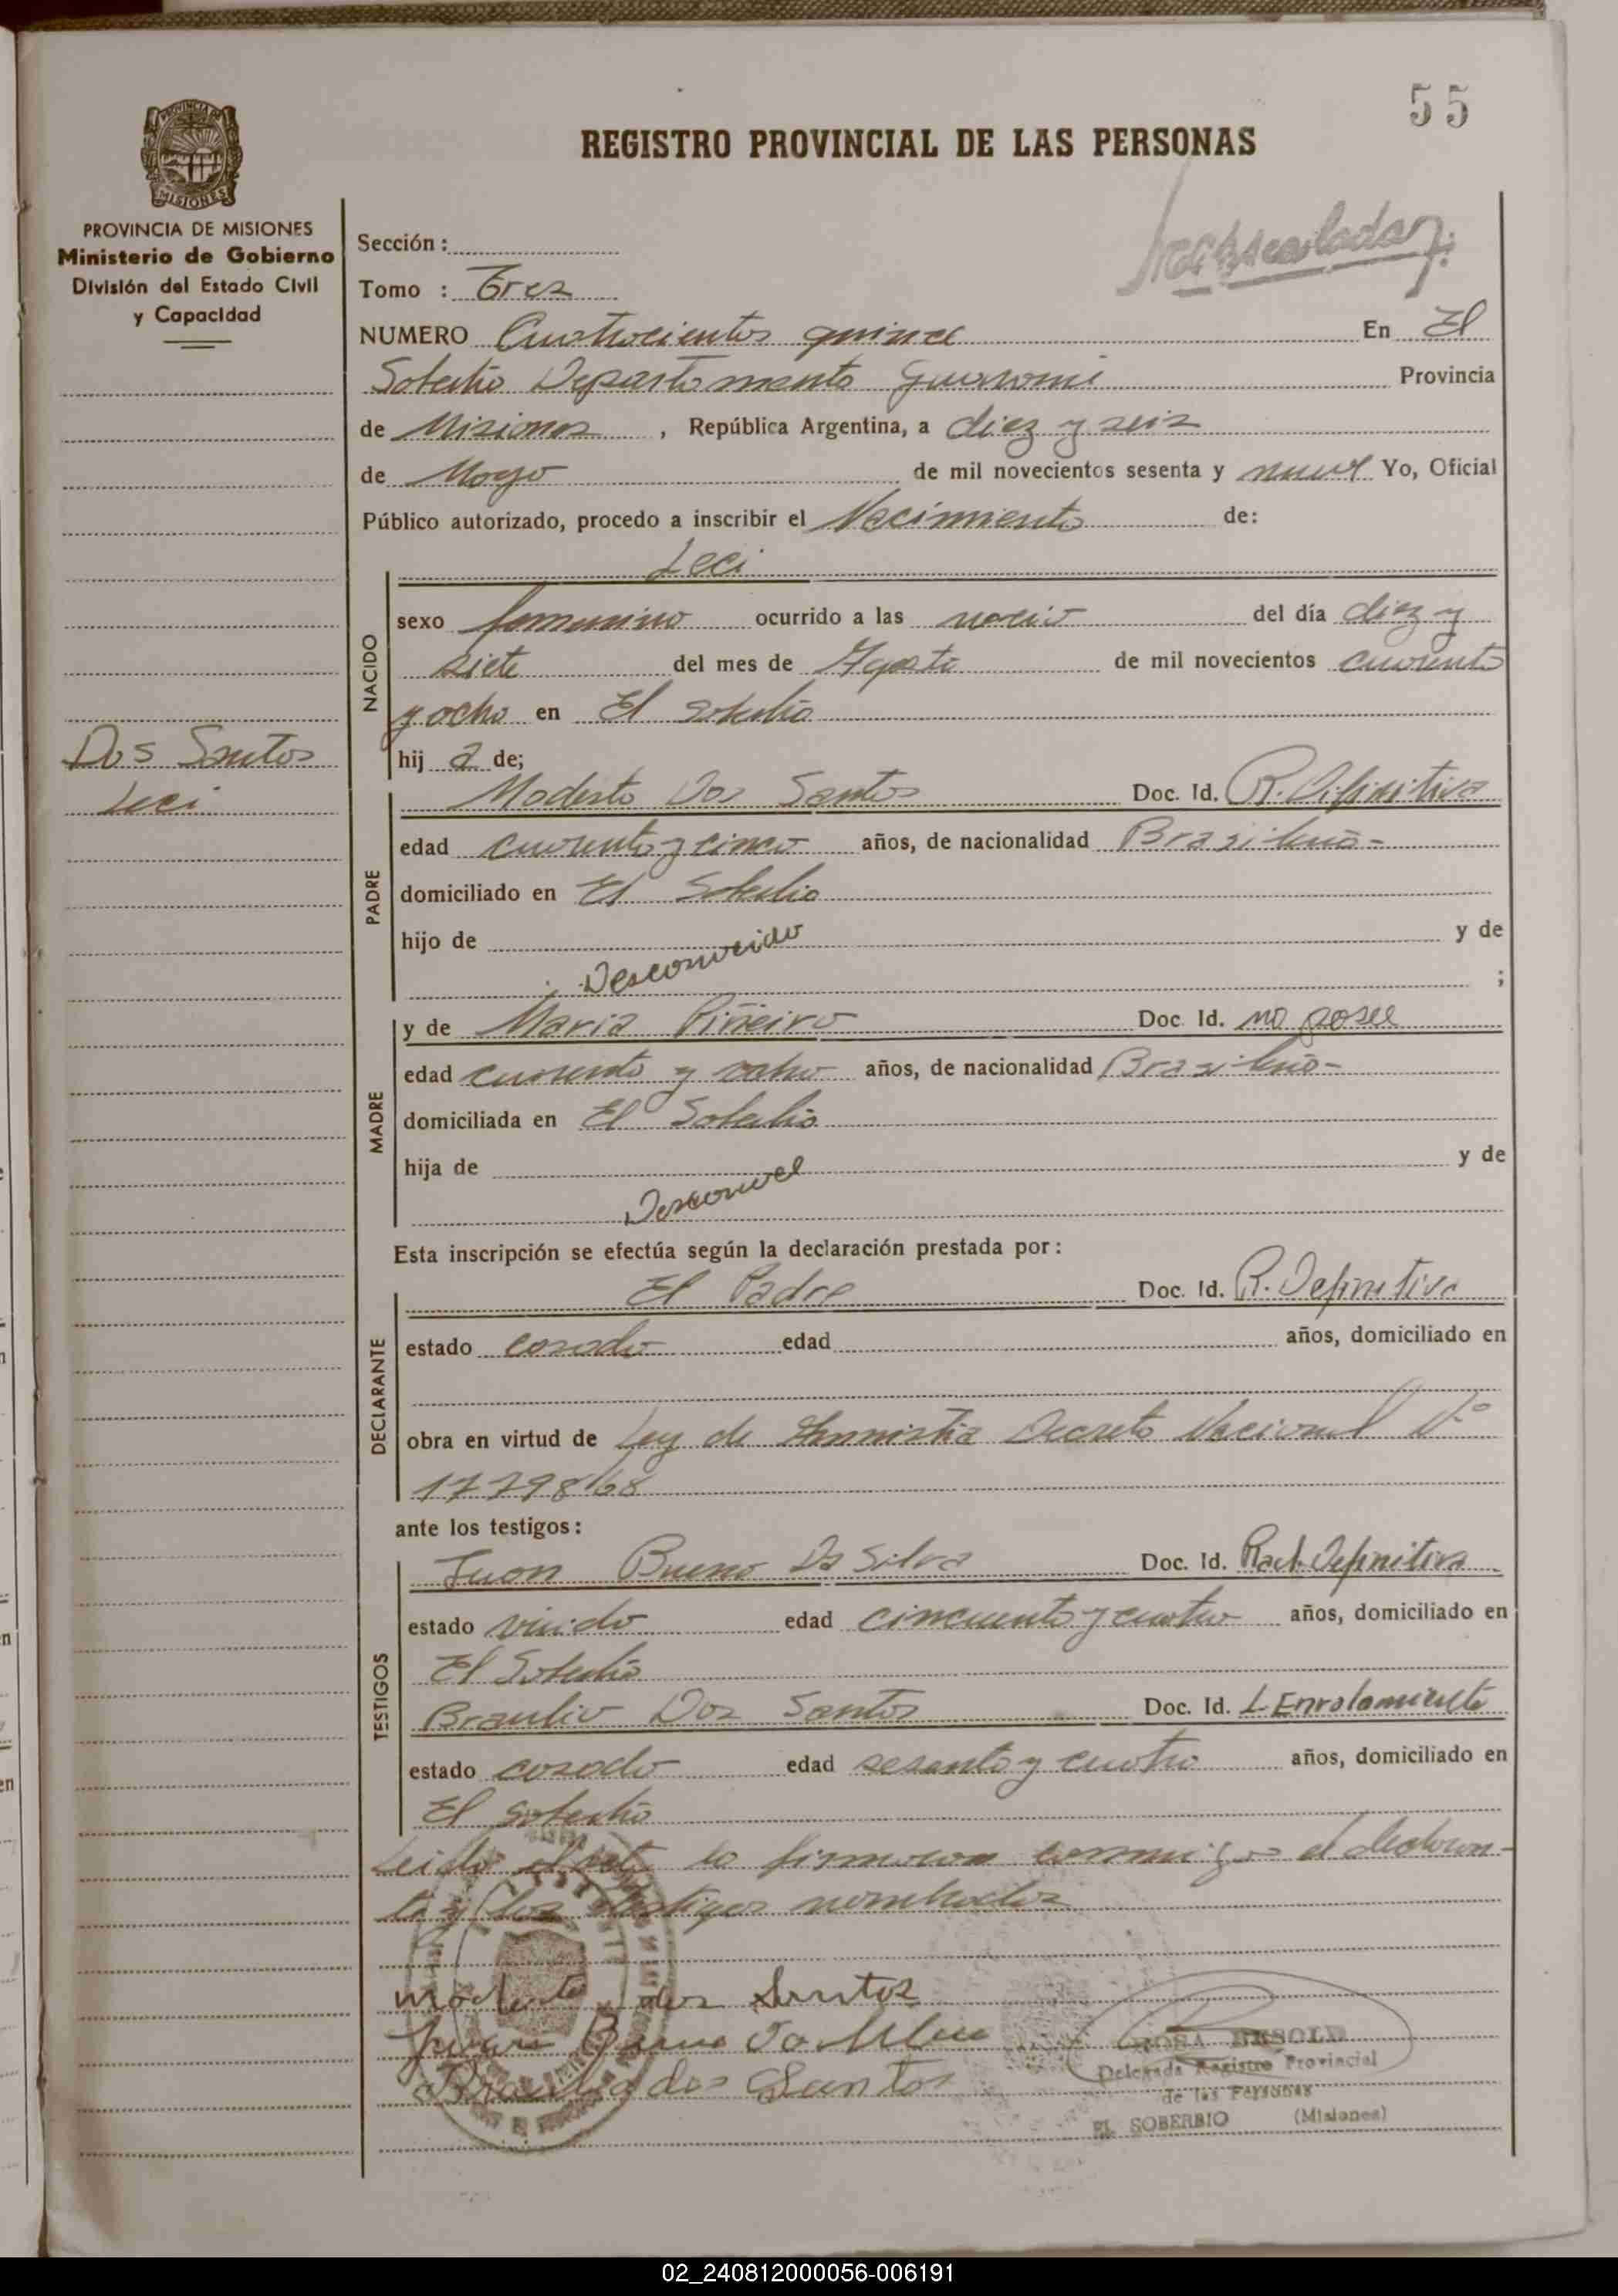 55
REGISTRO PROVINCIAL DE LAS PERSONAS
PROVINCIA DE MISIONES
MISIONES
PROVINCIA DE MISIONES
Ministerio de Gobierno
División del Estado Civil
y Capacidad
Dos Santos
Leci
Sección :
Tomo : Tres
NUMERO Cuatrocientos quince En El
Soberbio Departamento Guarani Provincia
de Misiones , República Argentina, a diez y seis
de Mayo de mil novecientos sesenta y nueve Yo, Oficial
Público autorizado, procedo a inscribir el Nacimiento de:
NACIDO
Leci
sexo femenino ocurrido a las del día diez y
siete del mes de Agosto de mil novecientos cuarenta
y ocho en El Soberbio
hij a de;
PADRE
Modesto Dos Santos Doc. Id. R. Difinitiva
edad cuarenta y cinco años, de nacionalidad Brasileño-
domiciliado en El Soberbio
hijo de y de
Desconocido ;
MADRE
y de Maria Piñeiro Doc. Id. no posee
edad cuarenta y ocho años, de nacionalidad Brasileño-
domiciliada en El Soberbio
hija de y de
Esta inscripción se efectúa según la declaración prestada por:
DECLARANTE
El Padre Doc. Id. R. Definitiva
estado casado edad años, domiciliado en
obra en virtud de Ley de Ammistia Decreto Nacional Nº
17798/68
ante los testigos:
TESTIGOS
Juan Bueno Da Silva Doc. Id. Rad. Definitiva
estado viudo edad cincuenta y cuatro años, domiciliado en
El Soberbio
Braulio Dos Santos Doc. Id. L Enrolamiento
estado casado edad sesenta y cuatro años, domiciliado en
El Soberbio
Leido el acta la firmaron conmigo el declaran-
te y los testigos nombrados
modesto dos Santos
Juan Bueno
Braulio dos Santos
ROSA
Delegada Registro Provincial
de las Personas
EL SOBERBIO (Misiones)
02_240812000056-006191